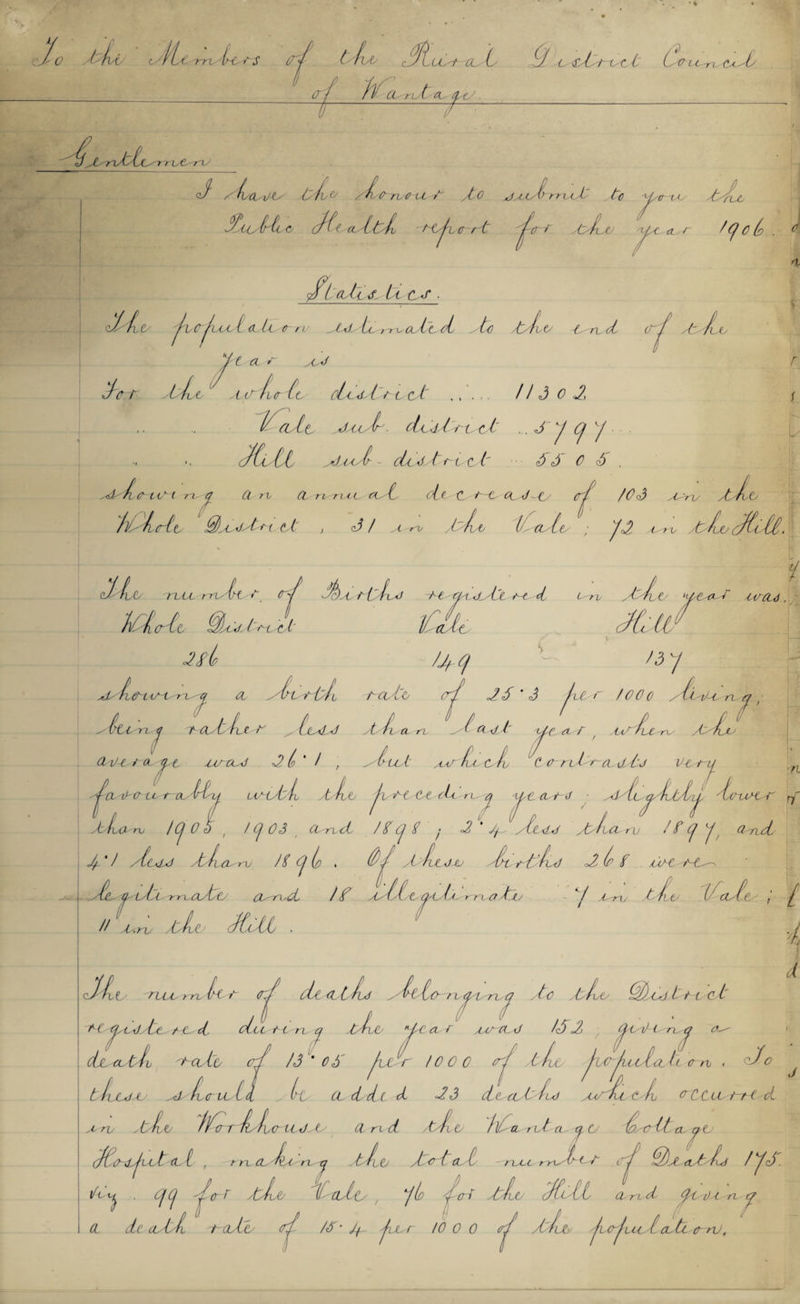 To the Members of the Rural District Council
of Wantage.
Gentlemen
I have the honour to submit to you the
Public Health report for the year 1906.
Statistics.
The population estimated to the end of the
year is
For the whole district ..... 11302,
Vale sub. district .. 5797
Hill sub-district 5505.
showing an annual decrease of 103 in the
Whole District, 31 in the Vale; 72 in the Hill.
The number of Births registered in the year was.
Whole District Vale Hill
286 149 137
showing a birth rate of 25.3 per 1000 living,
being rather less than last year, when the
average was 26.1, but which contrasts very
favourably with the preceding years; slightly lower
than 1905, 1903, and 1898; 2.4 less than 1897, and
4.1 less than 1896. Of these births 268 were
legitimate and 18 illegitimate - 7 in the Vale;
11 in the Hill.
The number of deaths belonging to the District
registered during the year was 152, giving a
death rate of 13.05 per 1000 of the population. To
these should be added 23 deaths which occurred
in the Workhouse and the Wantage Cottage
Hospital, making the total number of Deaths 175.
viz. 99 for the Vale, 76 for the Hill and giving
a death rate of 15.4 per 1000 of the population.